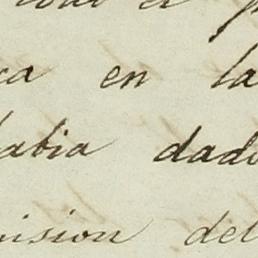 el p
ca en la
abia dado
mision del